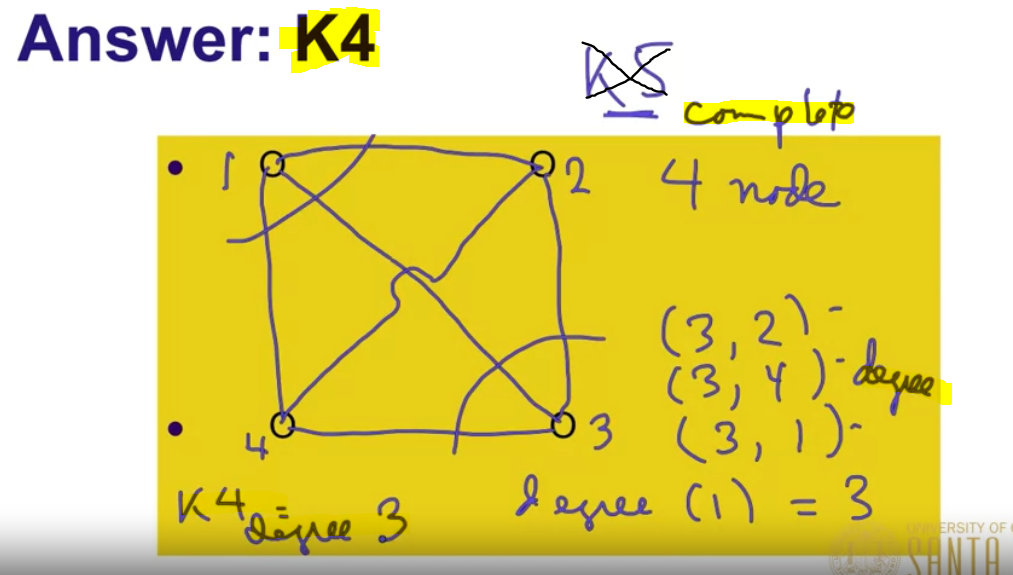 Answer: K4
K5
complete
1
2
4 node
(3, 2) -
(3, 4) - degree
4
3
(3, 1) -
K4 = degree 3
degree (1) = 3
UNIVERSITY OF
SANTA